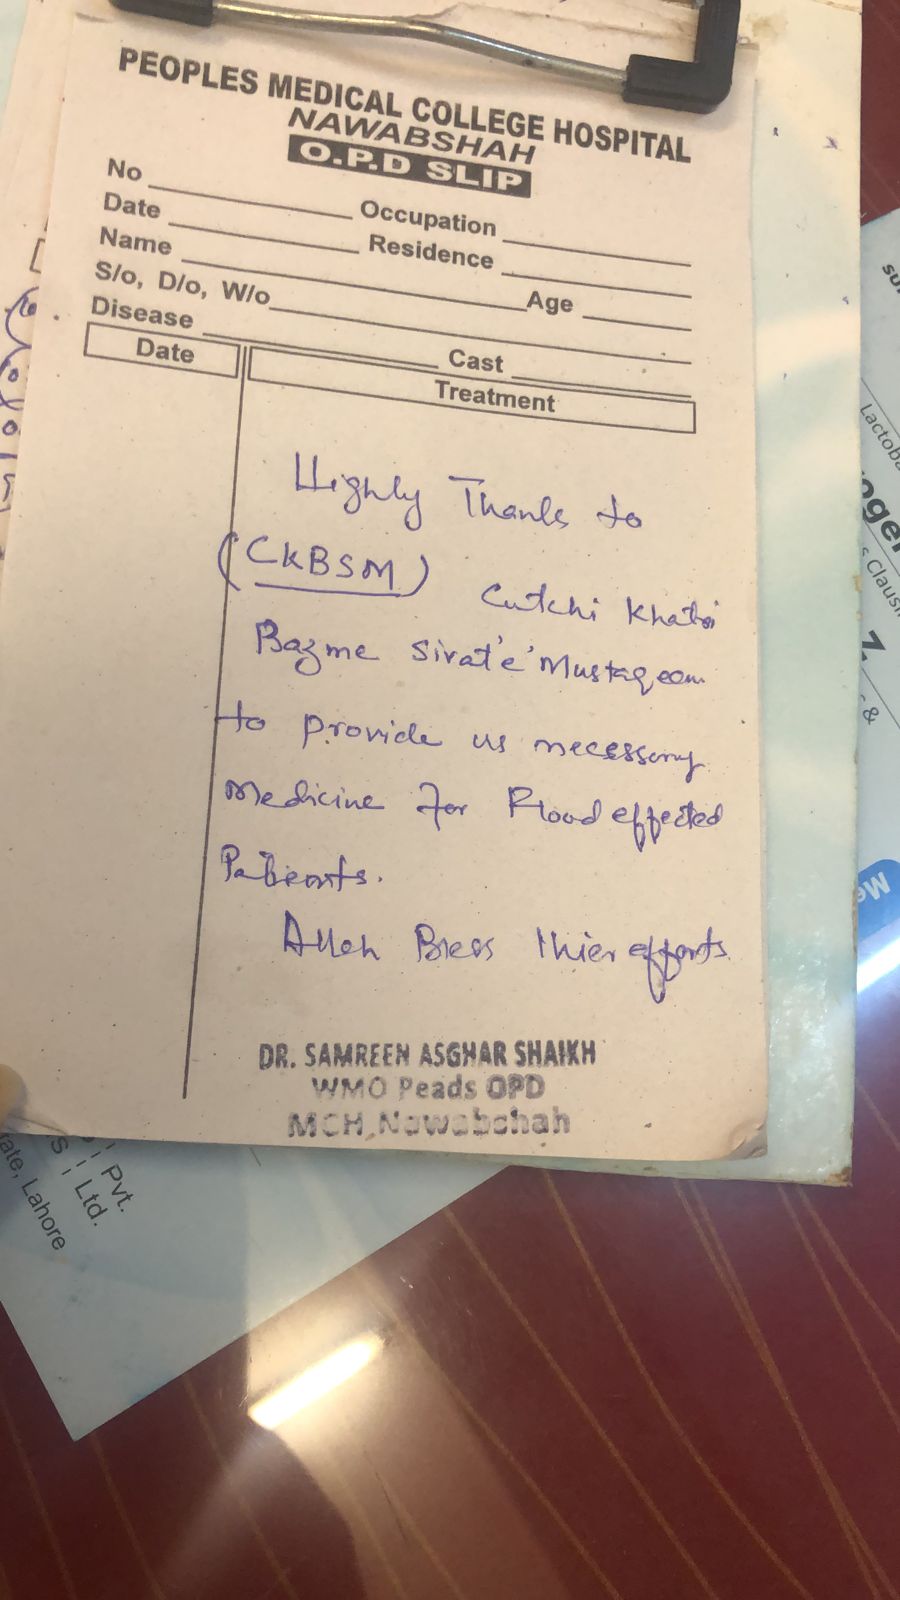 PEOPLES MEDICAL COLLEGE HOSPITAL
NAWABSHAH
O.P.D SLIP
No Occupation
Date Residence
Name Age
S/o, D/o, W/o
Disease Cast
Date Treatment
Highly Thanks to
(CKBSM) Cutchi Khatri
Bazme Sirat'e'Mustaqeem
to provide us necessary
Medicine for Flood effected
Patients.
Allah Bless thier efforts.
DR. SAMREEN ASGHAR SHAIKH
WMO Peads OPD
MCH Nawabshah
Pvt.
Ltd.
Lahore